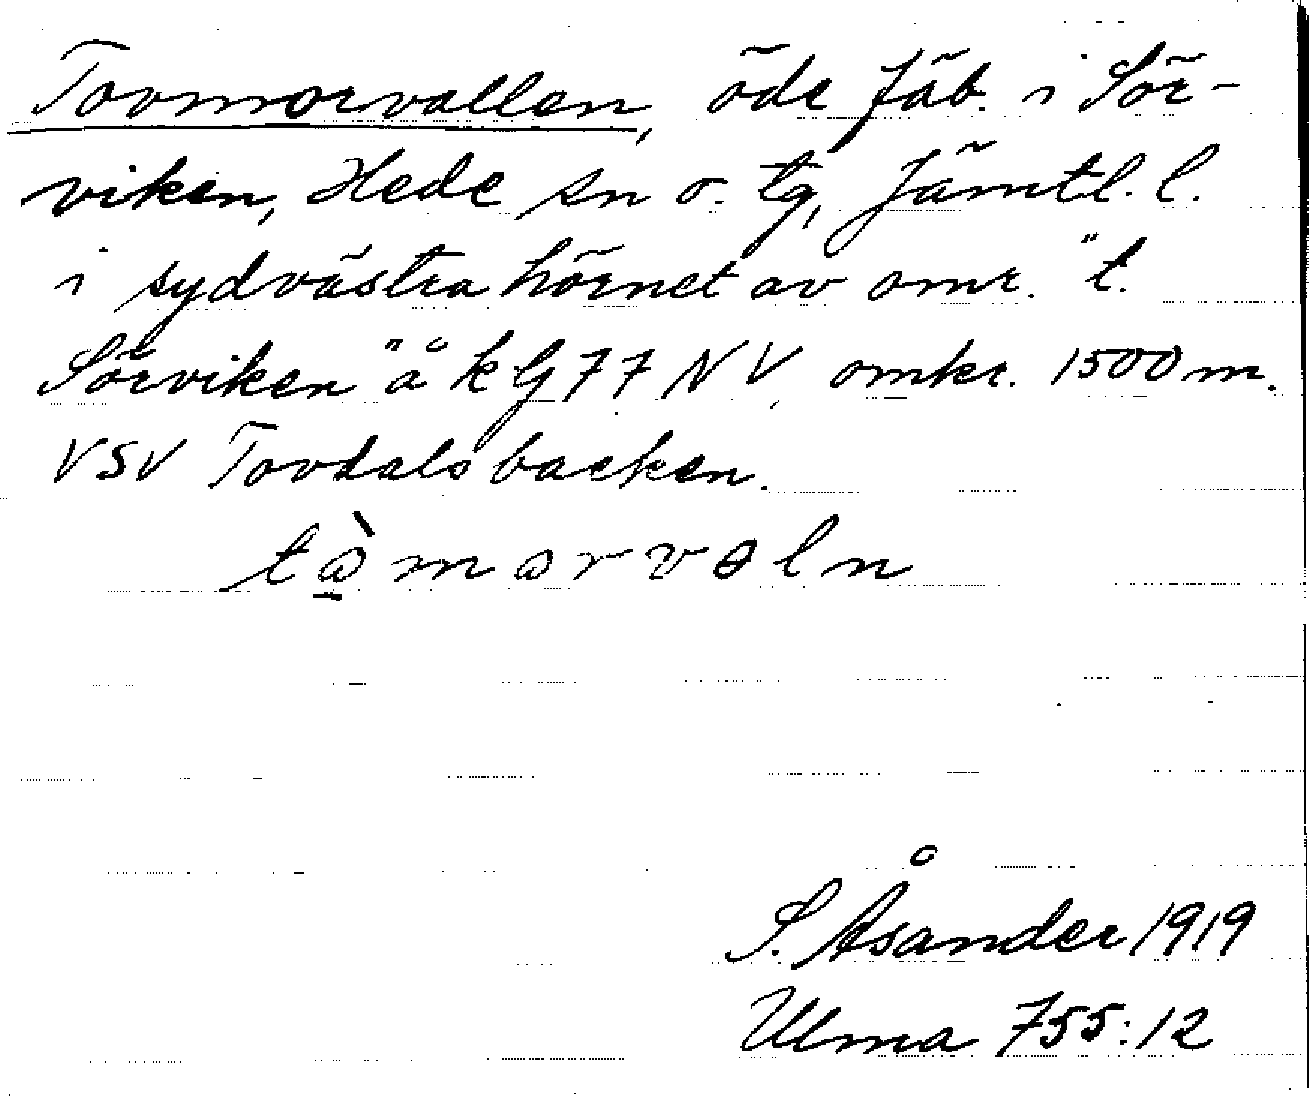 Tovmorvallen, öde fäb. i Sör-
viken, Hede sn o. tg, Jämtl. l.
i sydvästra hörnet av omr. "t.
Sörviken" å k G 77 NV, omkr. 1500 m.
VSV Tovdalsbacken.
tòmorvoln
S. Åsander 1919
Ulma 755:12